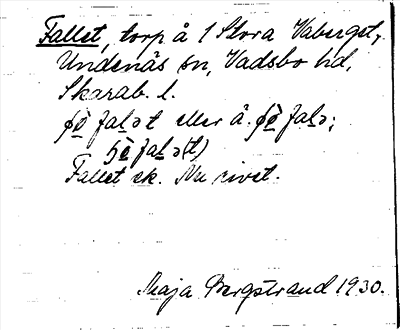 Fallet, torp å 1 Stora Vaberget,
Undenäs sn, Vadsbo hd,
Skarab. l.
eller å.
Fallet sk. Nu rivet.
Maja Bergstrand 1930.